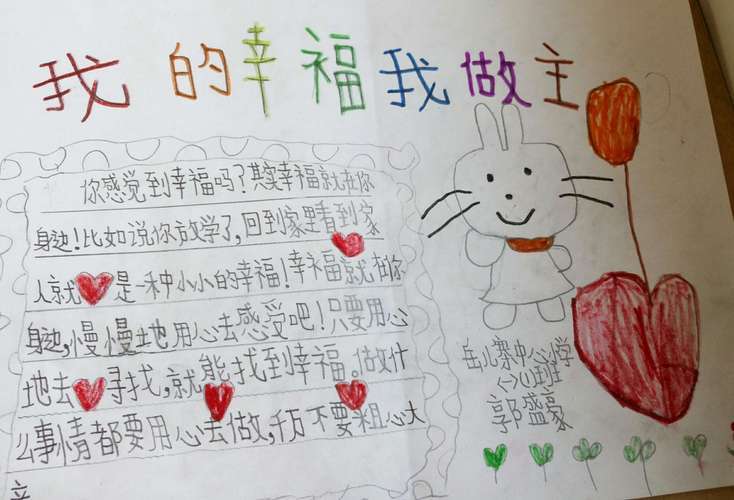 我的幸福我做主
你感觉到幸福吗？其实幸福就在你
身边！比如说你放学了，回到家里看到家
人就是一种小小的幸福！幸福就在你
身边，慢慢地用心去感受吧！只要用心
地去寻找，就能找到幸福。做什
么事情都要用心去做，千万不要粗心大
岳儿寨中心学
班
郭盛豪